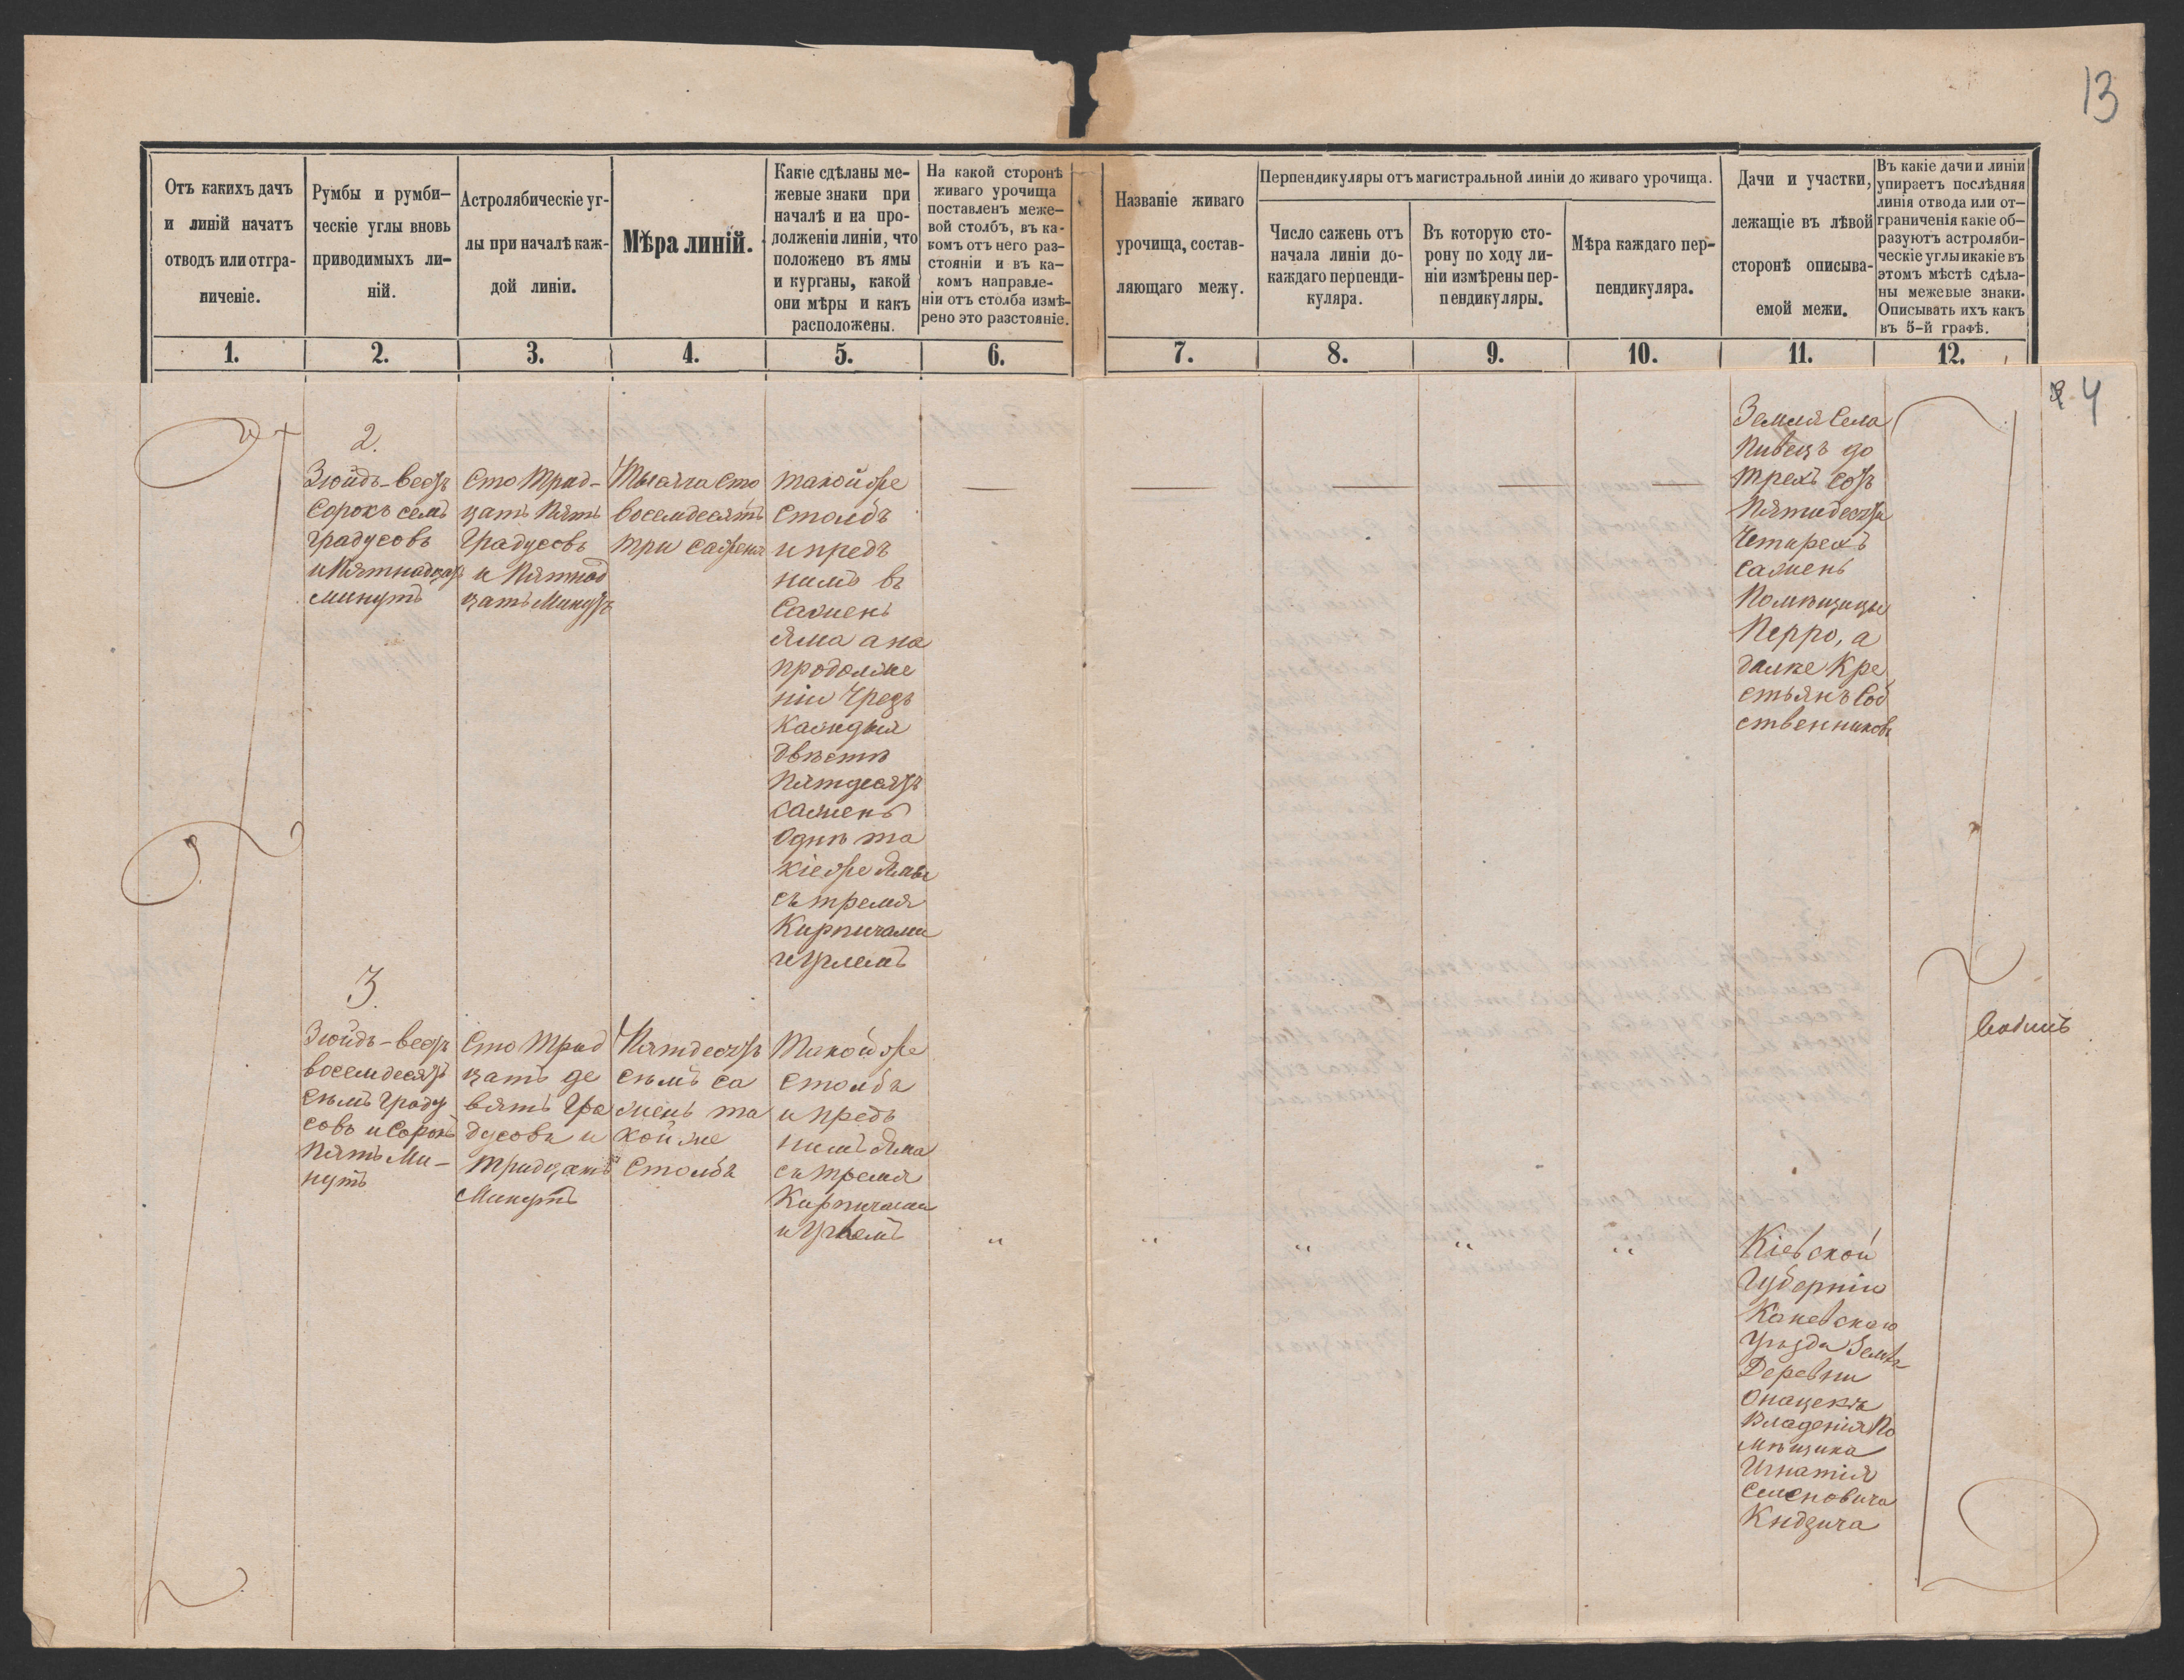 13
Отъ какихъ дачъ
и линій начатъ
отводъ или отгра-
ниченіе.
Румбы и румби-
ческіе углы вновь
приводимыхъ ли-
ній.
Астролябическіе уг-
лы при началѣ каж-
дой линіи.
Мѣра линій.
Какіе сдѣланы ме-
жевые знаки при
началѣ и на про-
долженіи линіи, что
положено въ ямы
и курганы, какой
они мѣры и какъ
расположены.
На какой сторонѣ
живаго урочища
поставленъ меже-
вой столбъ, въ ка-
комъ отъ него раз-
стояніи и въ ка-
комъ направле-
ніи отъ столба измѣ-
рено это разстояніе.
Названіе живаго
урочища, состав-
ляющаго межу.
Перпендикуляры отъ магистральной линіи до живаго урочища.
Число сажень отъ
начала линіи до-
каждаго перпенди-
куляра.
Въ которую сто-
рону по ходу ли-
ніи измѣрены пер-
пендикуляры.
Мѣра каждаго пер-
пендикуляра.
Дачи и участки,
лежащіе въ лѣвой
сторонѣ описыва-
емой межи.
Въ какіе дачи и линіи
упираетъ послѣдняя
линія отвода или от-
граниченія какіе об-
разуютъ астроляби-
ческіе углы и какіе въ
этомъ мѣстѣ сдѣла-
ны межевые знаки.
Описывать ихъ какъ
въ 5-й графѣ.
1. 2. 3. 4. 5. 6. 7. 8. 9. 10. 11. 12.
4
2.
Зюйдъ-Вестъ
Сорокъ семь
градусовъ
и Пятнадцать
минутъ
Сто Трид-
цать Пять
Градусовъ
и Пятнад
цать Минутъ
Тысяча Сто
восемдесятъ
три сажени
такой же
Столбъ
и предъ
нимъ въ
Сажень
Яма а на
продолже
ніи Чрезъ
Каждыя
Двѣстѣ
Пятдесятъ
сажень
Однѣ та
кіе же Ямы
съ тремя
Кирпичами
и Углемъ
Земля Села
Пивецъ до
трехъ сотъ
Пятидесяти
Четырехъ
сажень
Помѣщицы
Перро, а
далѣе Кре
стьянъ Соб
ственниковъ
3.
Зюйдъ-Вестъ
восемдесятъ
сѣмъ Граду
совъ и Сорокъ
Пять Ми-
нутъ
Сто Трид
цать де
вять Гра
дусовъ и
тридцать
Минутъ
Пятдесятъ
сѣмъ са
жень та
кой же
Столбъ
Такой же
Столбъ
и предъ
нимъ Яма
съ тремя
Кирпичами
и Углемъ
" " " " "
Кіевской
Губерніи
Каневскаго
Уѣзда Земля
Деревни
Владенія По
мѣщика
Игнатія
Семеновича